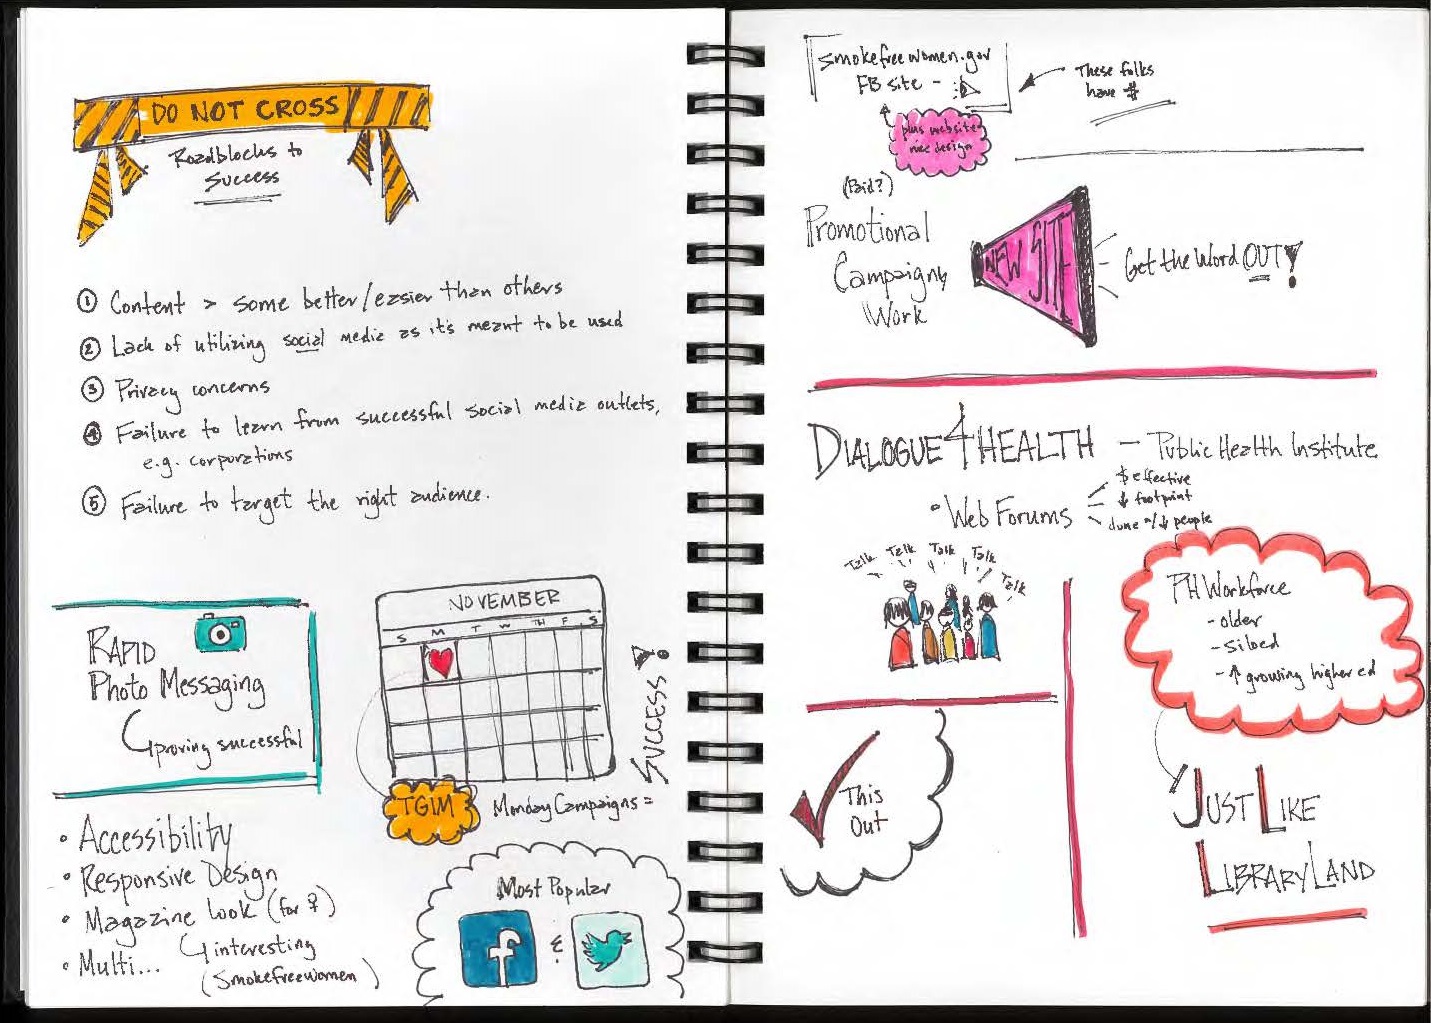 DO NOT CROSS
Roadblocks to
Success
① Content > some better/easier than others
② Lack of utilizing social media as it's meant to be used
③ Privacy concerns
④ Failure to learn from successful social media outlets,
e.g. corporations
⑤ Failure to target the right audience.
RAPID
Photo Messaging
proving successful
NOVEMBER
S M T W TH F S
SUCCESS!
TGIM
Monday Campaigns =
• Accessibility
• Responsive Design
• Magazine look (for ♀)
interesting
• Multi...
(smokefreewomen)
Most Popular
f & 
smokefreewomen.gov
FB site -
These folks
have #
plus website
nice design
(Paid?)
Promotional
Campaigns
Work
NEW SITE
Get the Word OUT!
DIALOGUE4HEALTH - Public Health Institute
• Web Forums
$ effective
↓ footprint
people
Talk Talk Talk Talk Talk
PH Workforce
- older
- siloed
- ↑ growing higher ed
This
Out
JUST LIKE
LIBRARYLAND